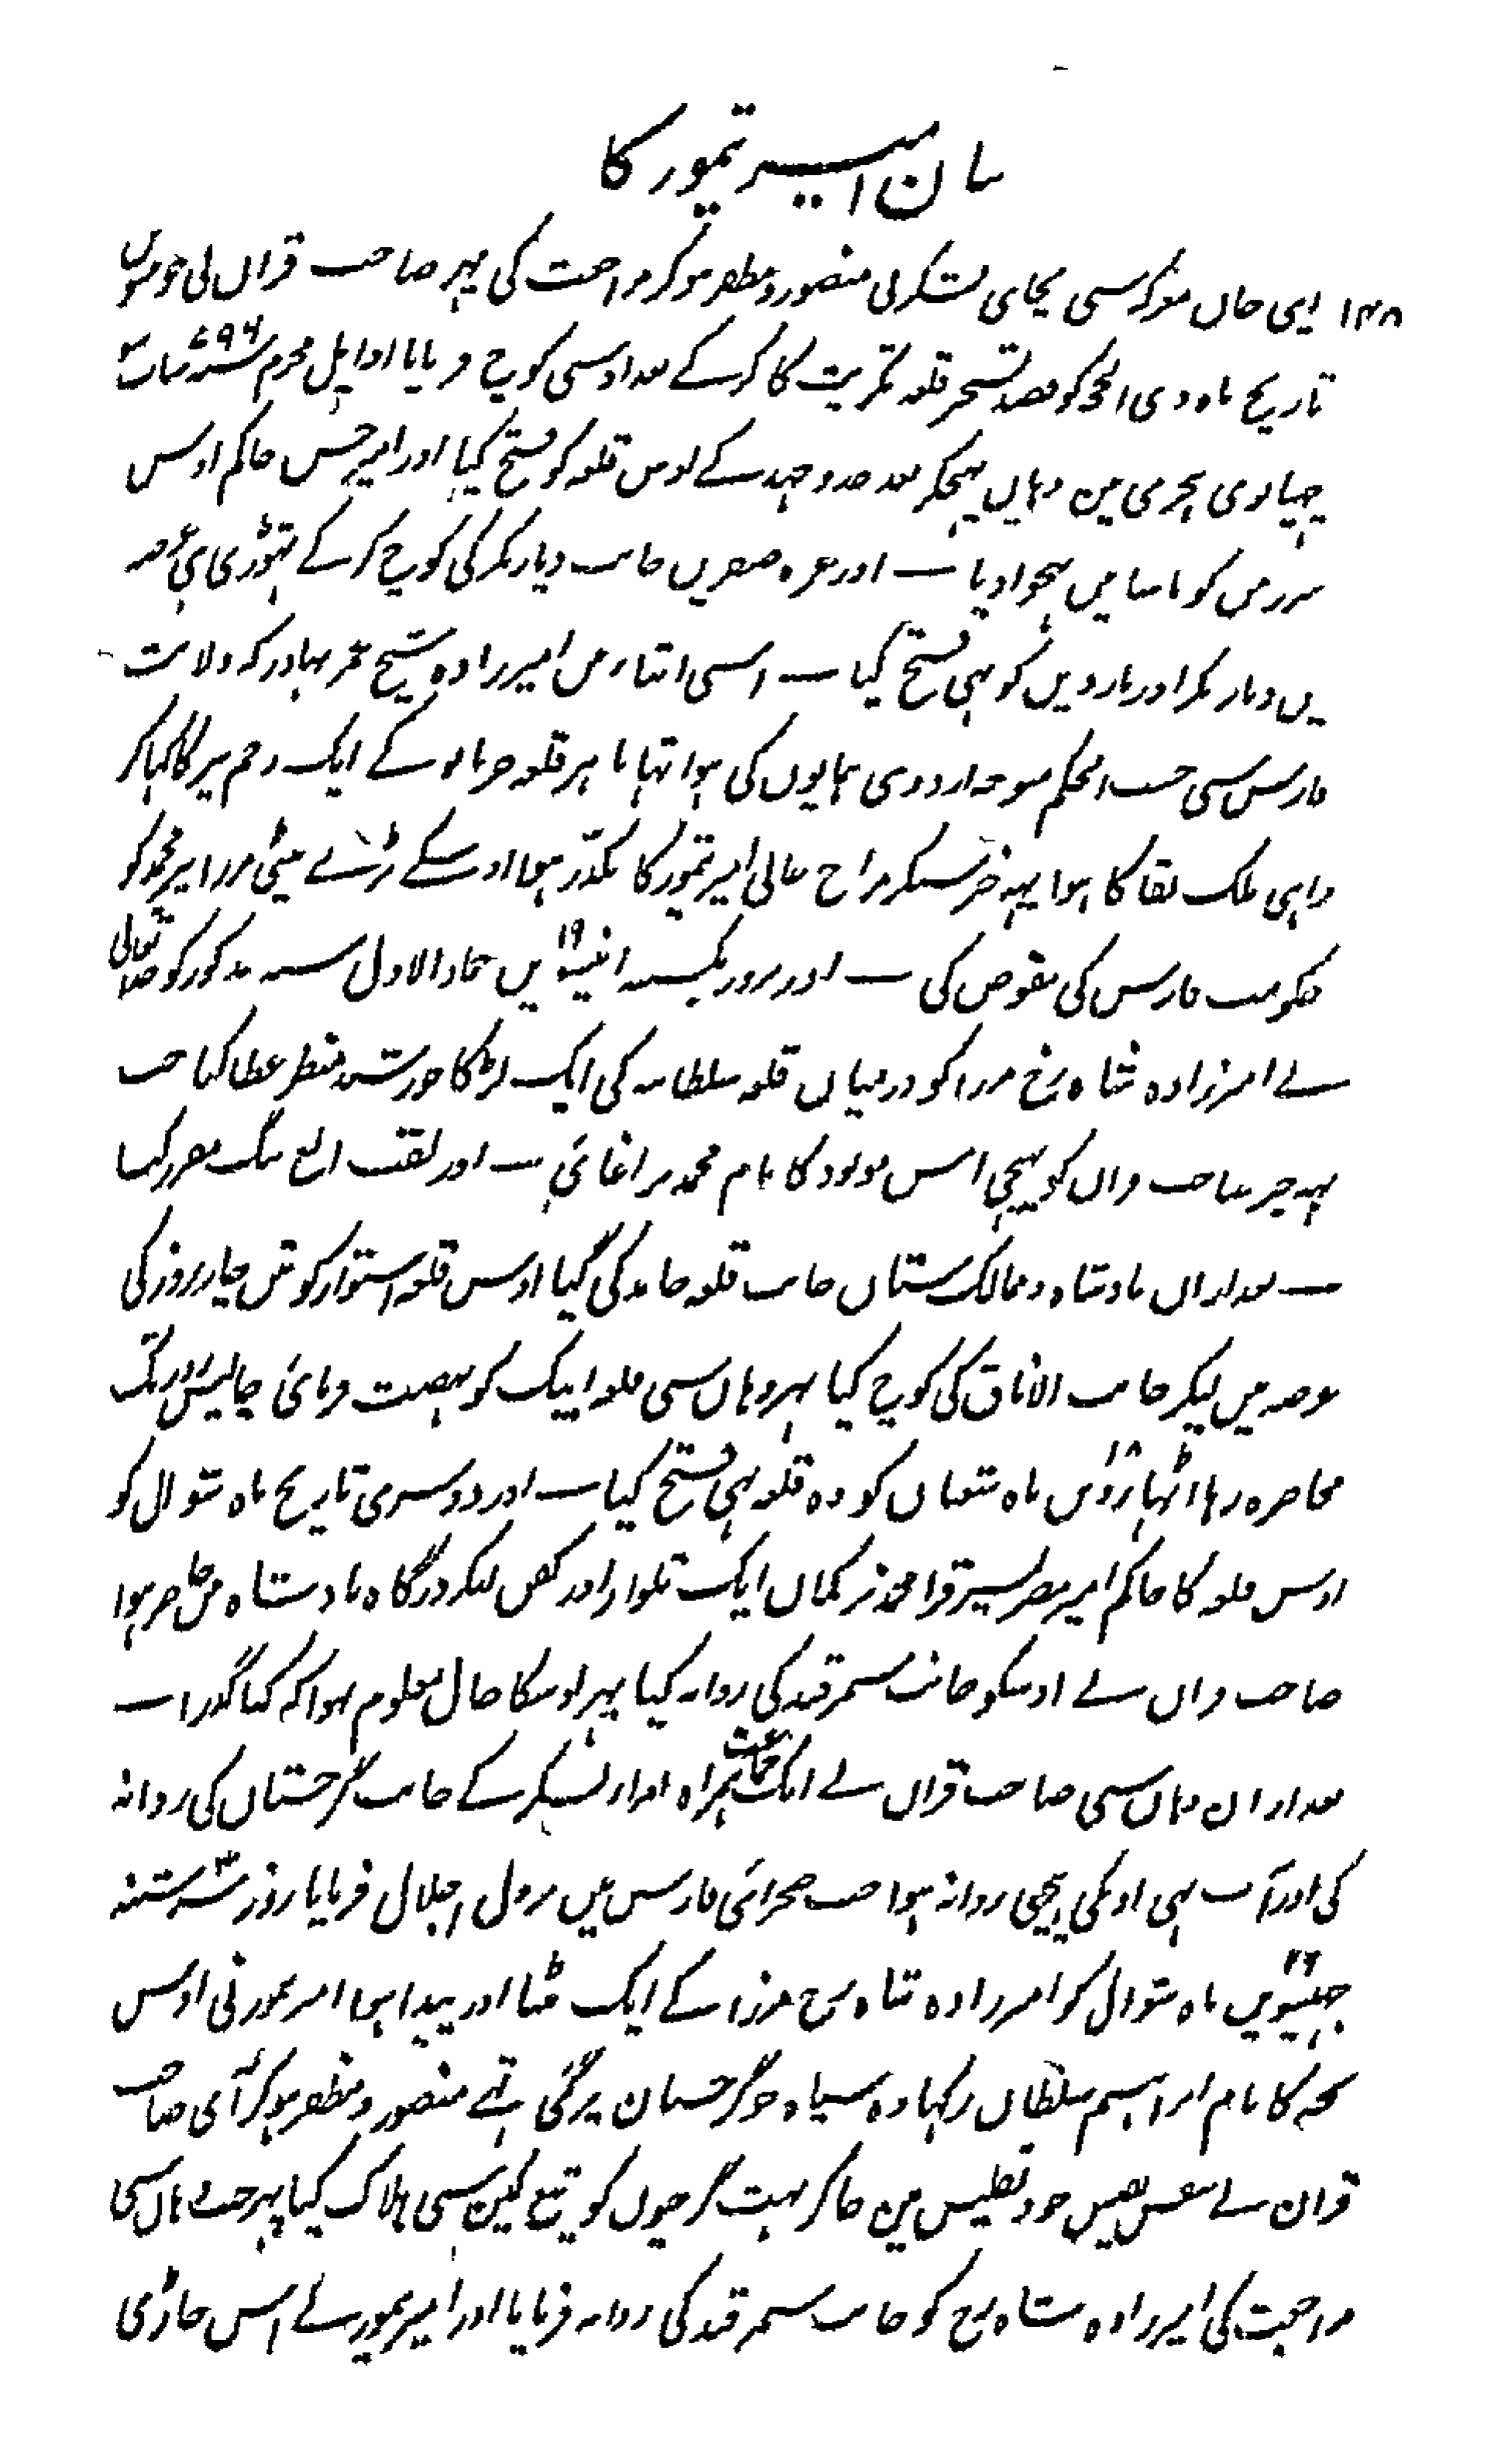 بیان امیر تیمور کا
۱۴۸ اپنی جان موکرسی بچای لشکرنی منصور و مظفر ہوکر مراجعت کی پہر صاحب قران نی چوبیسویں
تاریخ ماہ ذی الحجہ کو قصد تسخیر قلعہ تکریت کا کر کے بغداد سی کوچ فرمایا اوایل محرم سنہ ۷۹۶ سات سو
چہیانوی ہجری مین وہاں پہنچکر بعد جد و جہد کے اوس قلعہ کو فتح کیا اور امیر حسن حاکم اوس
سرزمین کو مع عرہ صفر میں جانب دیار بکر کی کوچ کر کے تہوڑی ہی عرصہ
میں دیار بکر اور ماردین کو بہی فتح کیا ۔ اسی اثناء میں امیر زادہ شیخ عمر بہادر کہ ولایت
فارس سی حسب الحکم متوجہ اردوی ہمایوں کی ہوا تہا باہر قلعہ خرماتو کے ایک زخم تیر کا کہا کر
راہی ملک بقا کا ہوا یہہ خبر سنکر مزاج عالی امیر تیمور کا مکدّر ہوا اوسکے بڑے بیٹی مرزا پیر محمد کو
حکومت فارس کی مفوض کی ۔ اور بروز یکشنبہ انیسویں ۱۹ جماد الاول سنہ مذکور کو خدا تعالی
نے امیرزادہ شاہ رخ مرزا کو درمیان قلعہ سلطانیہ کی ایک لڑکا خورشید منظر عطا کیا جب
یہہ خبر صاحب قران کو پہنچی اس مولود کا نام محمد تراغائی ۔ اور لقب الغ بیگ مقرر کیا
۔ بعد ازاں بادشاہ و ممالک ستاں جانب قلعہ حامد کی گیا اوس قلعہ استوار کو تین چار روز کی
عرصہ میں لیکر جانب الاتاق کی کوچ کیا پہر وہاں سی قلعہ ایتیک کو نہضت فرمائی چالیس روز تک
محاصرہ رہا اٹہارویں ۱۸ ماہ شعبان کو وہ قلعہ بہی فتح کیا ۔ اور دوسری تاریخ ماہ شوال کو
اوس قلعہ کا حاکم امیر مصر پسر قرا محمد ترکمان ایک تلوار اور کفن لیکر درگاہ بادشاہ میں حاضر ہوا
صاحب قران نے اوسکو جانب سمرقند کی روانہ کیا پہر اوسکا حال معلوم ہوا کہ کیا گذرا ۔
بعد ازان وہاں سی صاحب قران نے ایک جماعت ہمراہ امراء لشکر کے جانب گرجستان کی روانہ
کی اور آپ بہی اونکی پیچہی روانہ ہوا جب صحرائی فارس میں نزول اجلال فرمایا روز سہ شنبہ
چہبیسویں ۲۶ ماہ شوال کو امیر زادہ شاہ رخ مرزا کے ایک بیٹا اور پیدا ہوا امیر تیمور نی اوس
بچہ کا نام ابراہیم سلطان رکہا وہ سپاہ جو گرجستان پر گئی تہی منصور و مظفر ہوکر آئی صاحب
قران نے بنفس نفیس خود تفلیس مین جا کر بہت گرجیوں کو تیغ کین سی ہلاک کیا پہر جب وہاں سی
مراجعت کی امیر زادہ شاہ رخ کو جانب سمرقند کی روانہ فرمایا اور امیر تیمور نے اس جاڑی